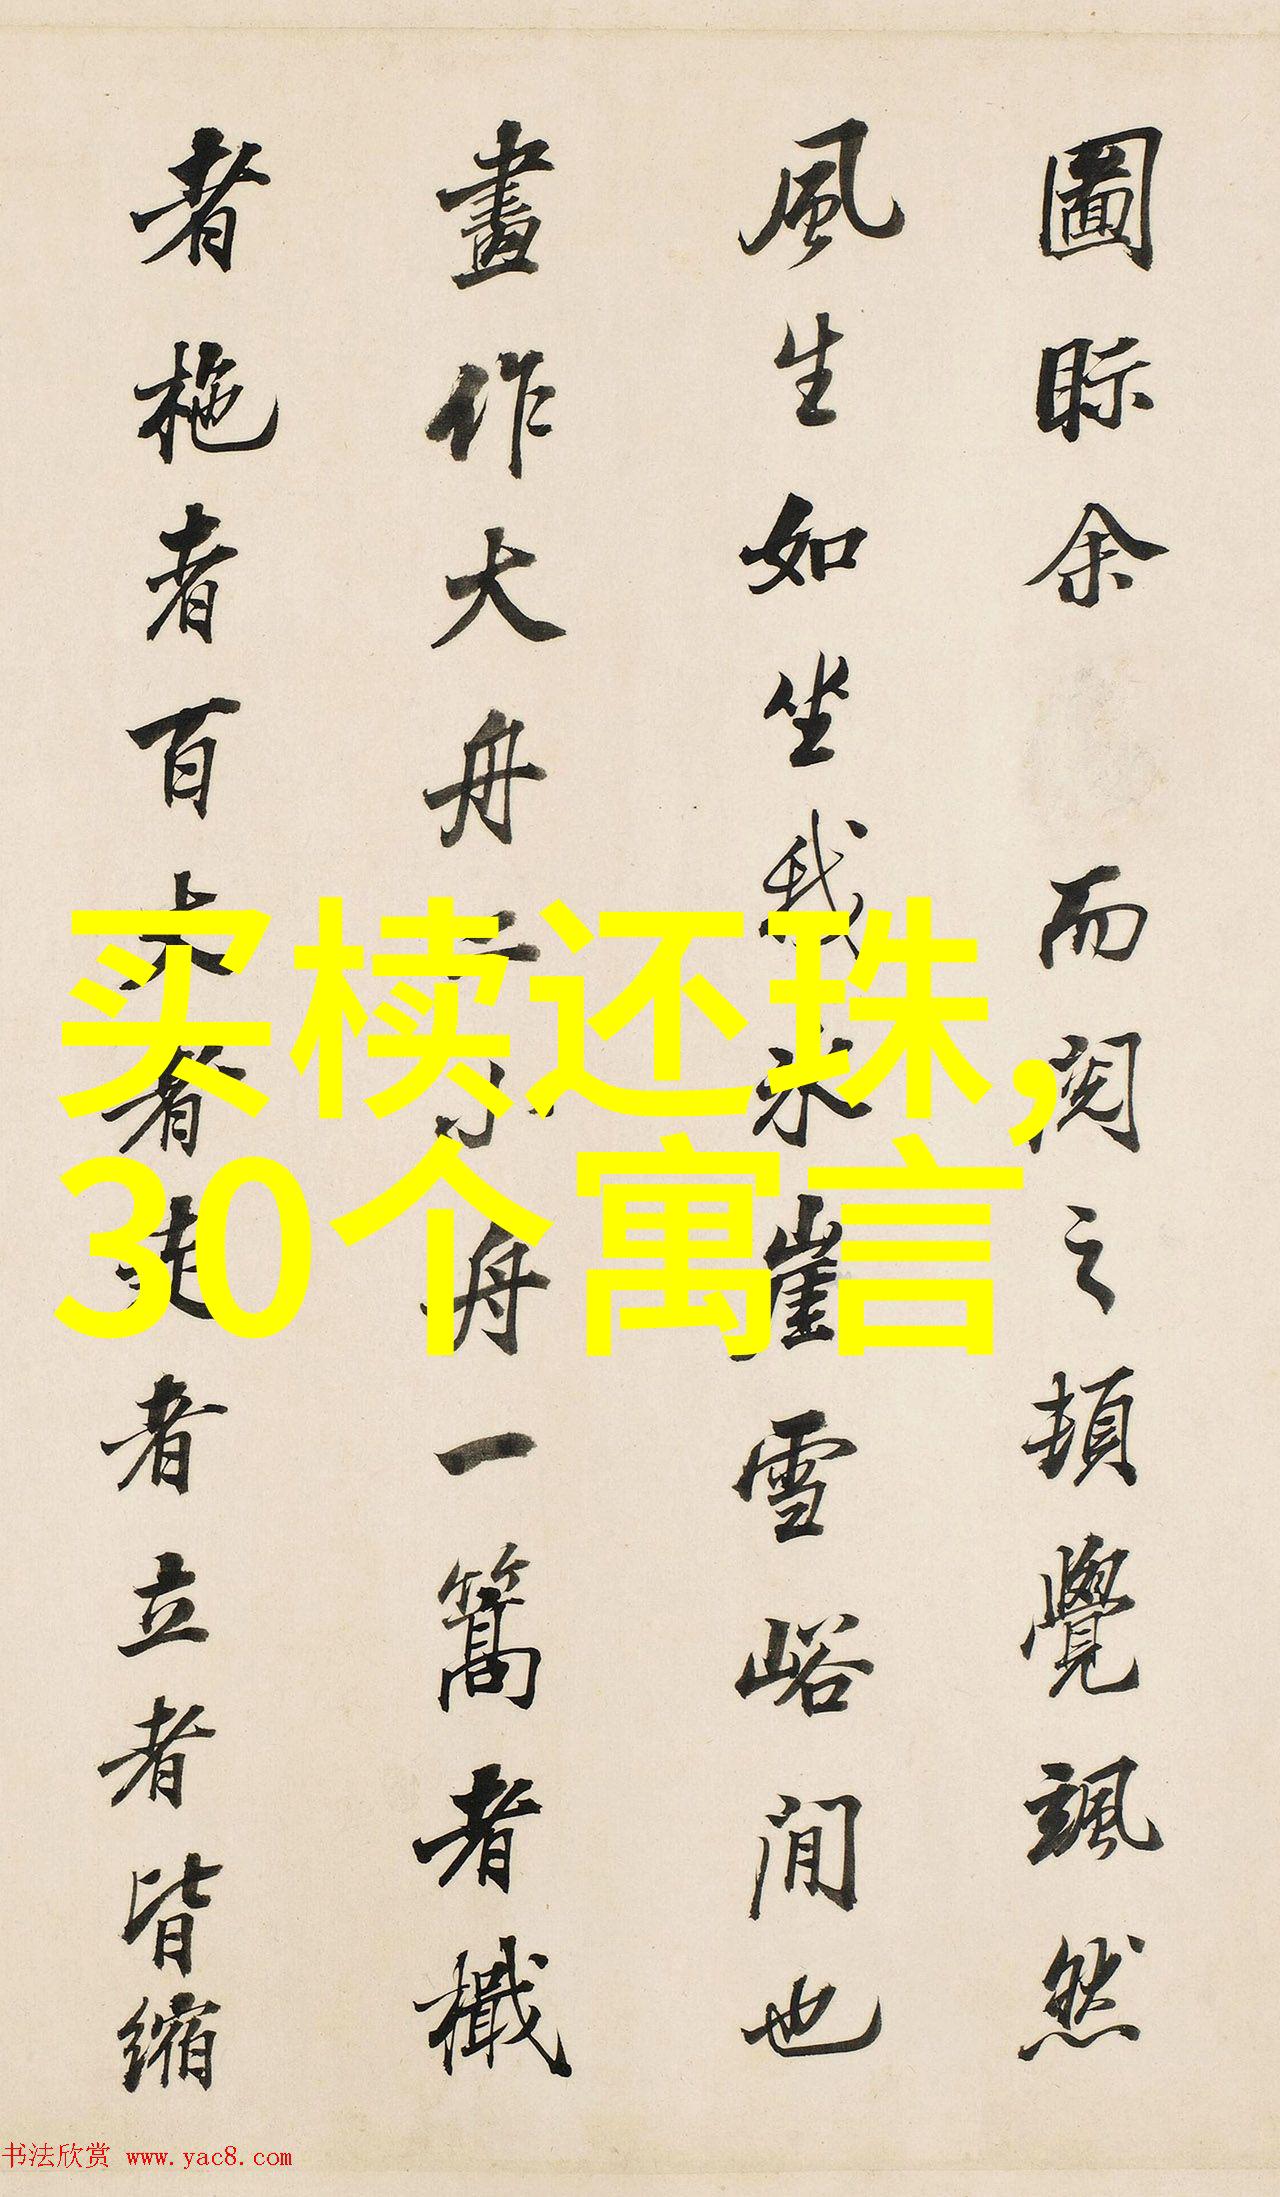 圖眎余 而閱之頓覺颯然
風生如坐我冰崖雪峪間也
畫作大舟二小舟一篙者檝
者柂者百丈者走者立者皆縮
买椟还珠,
30个寓言
书法欣赏 www.yac8.com